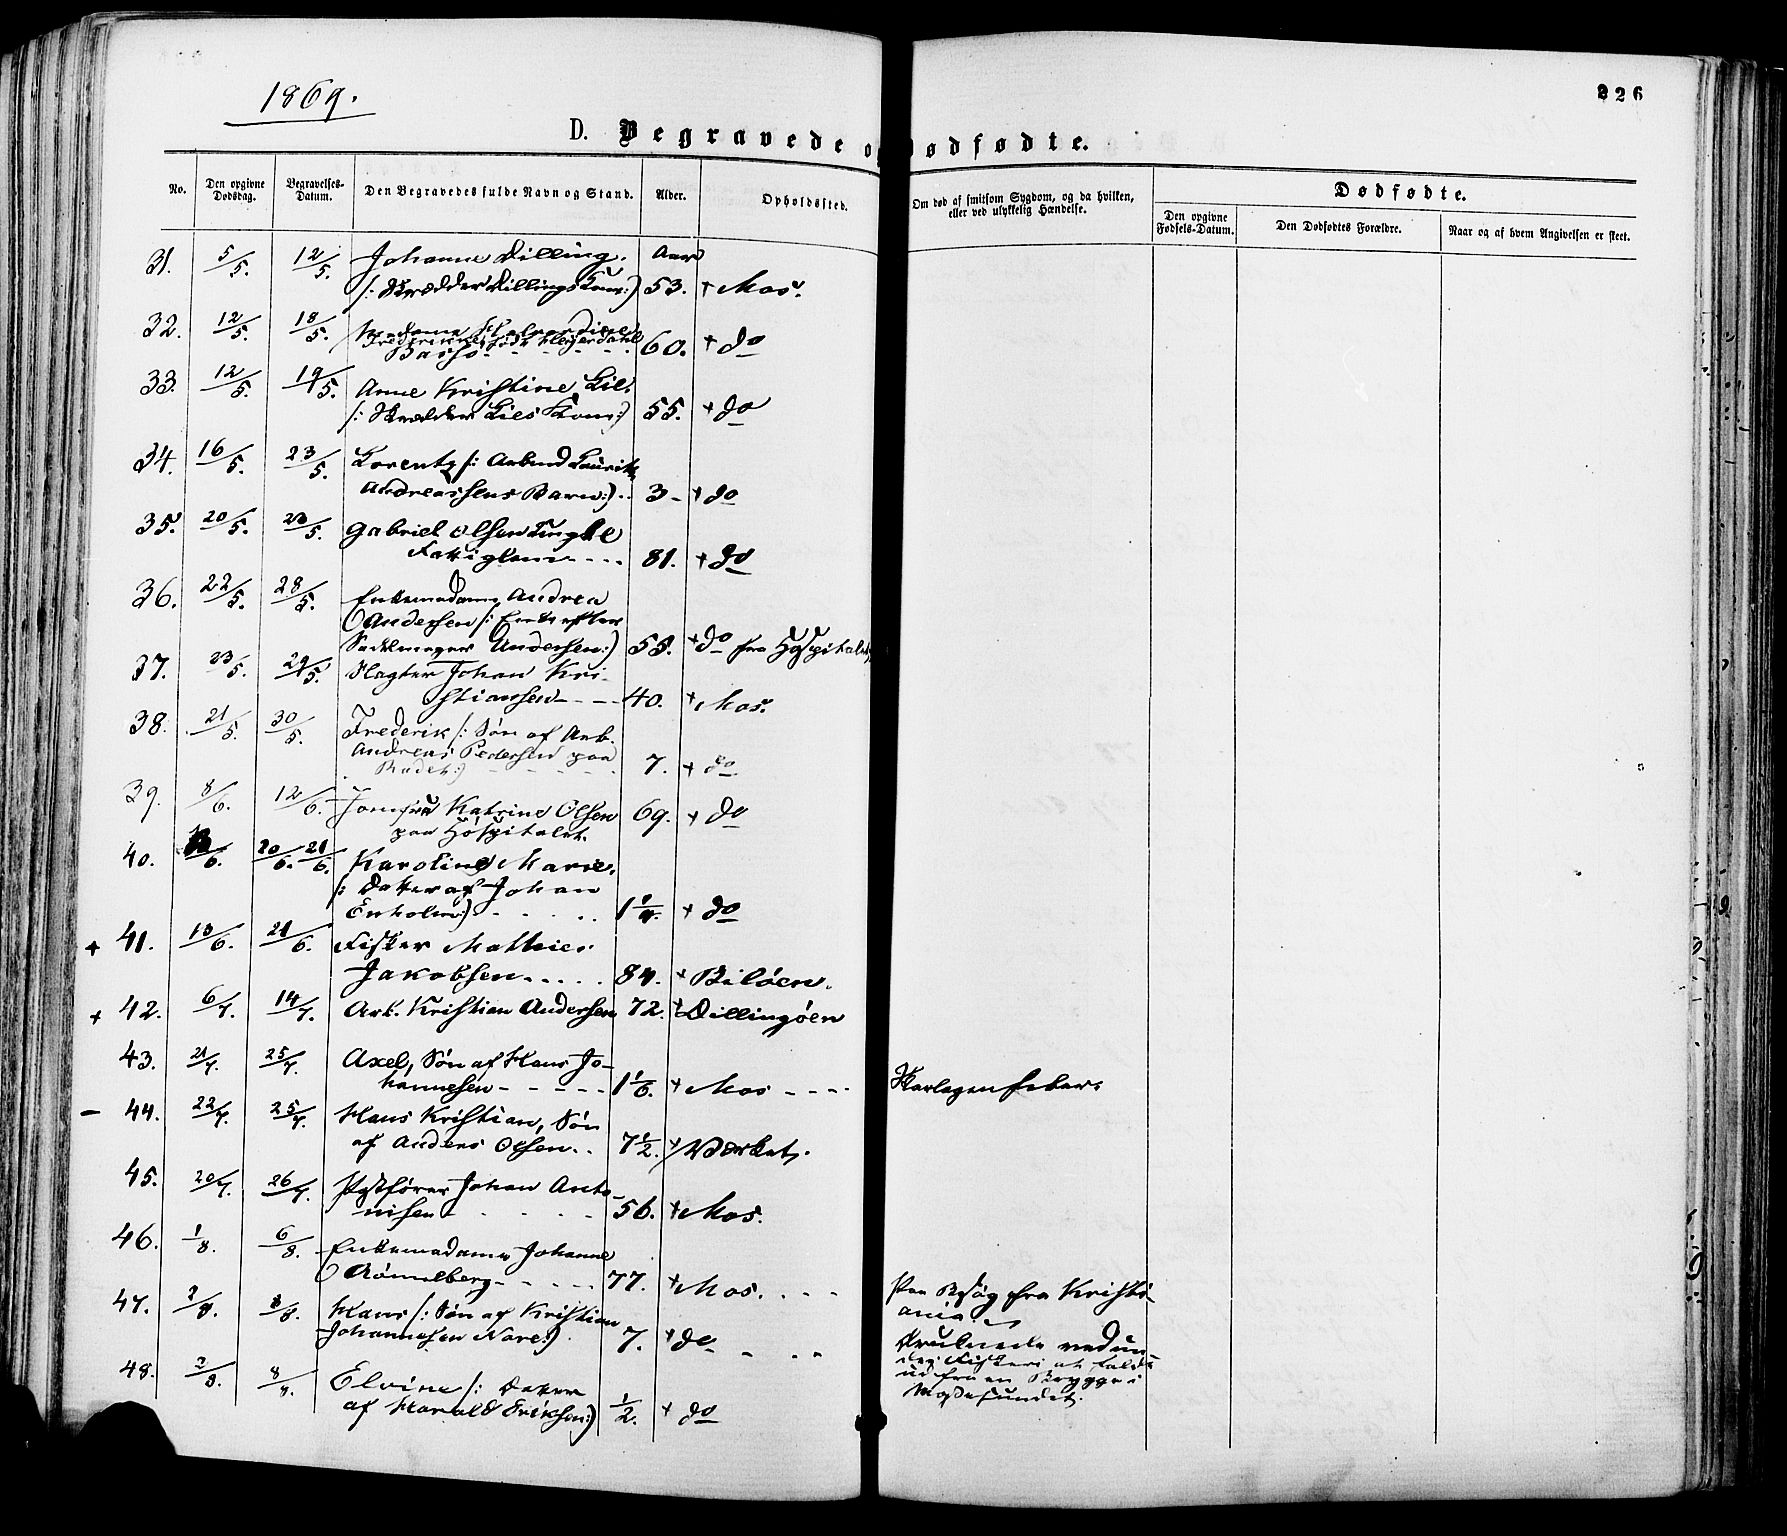 1869.
226
D. Begravede o Dødfødte.
No. Den opgivne Dødsdag. Begravelses-Datum. Den Begravedes fulde Navn og Stand. Alder. Opholdssted. Om død af smitsom Sygdom, og da hvilken, eller ved ulykkelig Hændelse. Dødfødte.
Den opgivne Fødsels-Datum. Den Dødfødtes Forældre. Naar og af hvem Angivelsen er skeet.
31. 5/5. 12/5. Johanne Dilling. Aar
/: Skrædder Dillings Kone:) 53. + Mos.
32. 12/5. 18/5. Madame Halvordine
Frederikke, født Heyerdahl
Basse 60. + do
33. 12/5. 19/5. Anne Kristine Lie.
/: Skrædder Lies Kone:) 55. + do
34. 16/5. 23/5. Lorentz /: Arbmd Laurits
Andreassens Barn:) 3 - + do
35. 20/5. 23/5. Gabriel Olsen
Fattiglem 81. + do
36. 22/5. 28/5. Enkemadame Andrea
Andersen /: Enke efter
Sadelmager Andersen:) 58. + do fra Hospitalet
37. 23/5. 29/5. Slagter Johan Kri-
stiansen 40. + Mos.
38. 21/5. 30/5. Frederik /: Søn af Arb.
Andreas Pedersen paa
7. + do
39. 8/6. 12/6. Jomfru Katrine Olsen 69. + do
paa Hospitalet.
40. /6. 20/6. 21/6. Karoline Marie.
/: Datter af Johan
Enholm:) 1 1/4. + do
+ 41. 13/6. 21/6. Fisker Mathies
Jakobsen 84. + Biløen.
+ 42. 6/7. 14/7. Arb. Kristian Andersen 72. + Dillingøen
43. 21/7. 25/7. Axel, Søn af Hans Jo-
hannesen 1 1/6. + Mos Skarlagensfeber.
- 44. 22/7. 25/7. Hans Kristian, Søn
af Anders Olsen 7 1/2. + Værket.
45. 20/7. 26/7. Postfører Johan Anto-
nisen 56. + Mos.
46. 1/8. 6/8. Enkemadame Johanne
Rønnelberg 77. + Mos. Paa Besøg fra Kristi-
ania.
47. 2/8. 8/8. Hans /: Søn af Kristian
Johannesen Nare:) 7. + do Druknede ved un-
der Fiskeri at falde
ud fra en Brygge i
Mossesundet.
48. 2/8. 8/8. Elvine /: Datter
af Harald Eriksen:) 1/2. + do